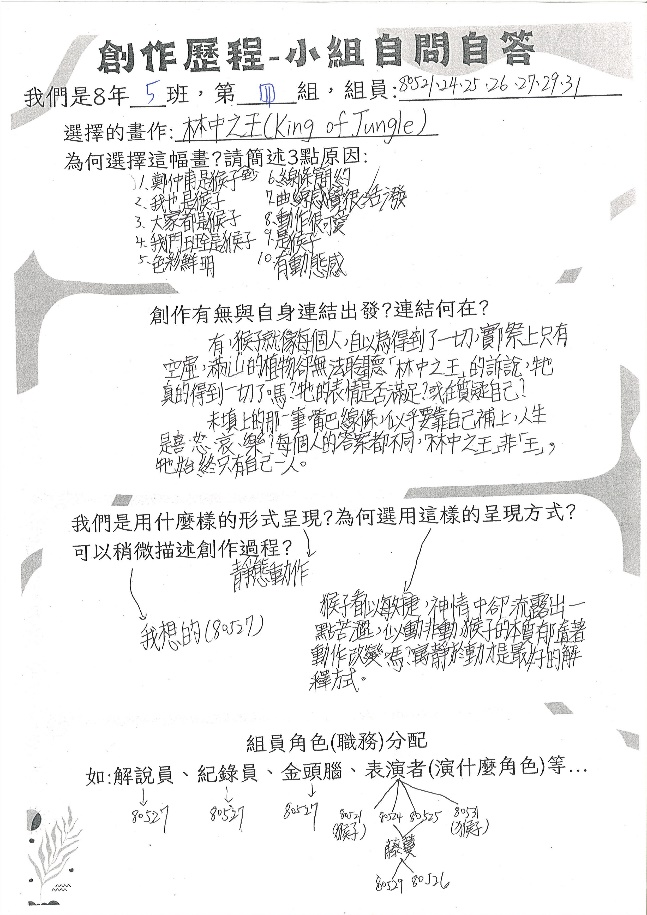 創作歷程-小組自問自答
我們是8年5班，第四組，組員:80521、24、25、26、27、29、31
選擇的畫作:林中之王(King of Jungle)
為何選擇這幅畫?請簡述3點原因:
1. 鄭仲甫是猴子
2. 我也是猴子
3. 大家都是猴子
4. 我們班全是猴子
5. 色彩鮮明
6. 線條簡約
7. 曲線感覺很活潑
8. 動作很可愛
9. 是猴子
10. 有動態感
創作有無與自身連結出發?連結何在?
有，猴子就像每個人，自以為得到了一切，實際上只有
空虛，滿山的植物卻無法聆聽「林中之王」的訴說，牠
真的得到一切了嗎?牠的表情是否滿足?或在質疑自己?
未填上的那一筆嘴巴線條，似乎要靠自己補上，人生
是喜、怒、哀、樂?每個人的答案都不同，「林中之王」非「王」，
牠始終只有自己一人。
我們是用什麼樣的形式呈現?為何選用這樣的呈現方式?
可以稍微描述創作過程?
靜態動作
我想的(80527)
猴子看似敏捷，神情中卻流露出一
點苦澀，似動非動，猴子的本質有隨著
動作改變嗎?寓靜於動才是最好的解
釋方式。
組員角色(職務)分配
如:解說員、紀錄員、金頭腦、表演者(演什麼角色)等…
80527 80527 80527 80521 8024 80525 80531
(猴子) (猴子)
藤蔓
80529 80526